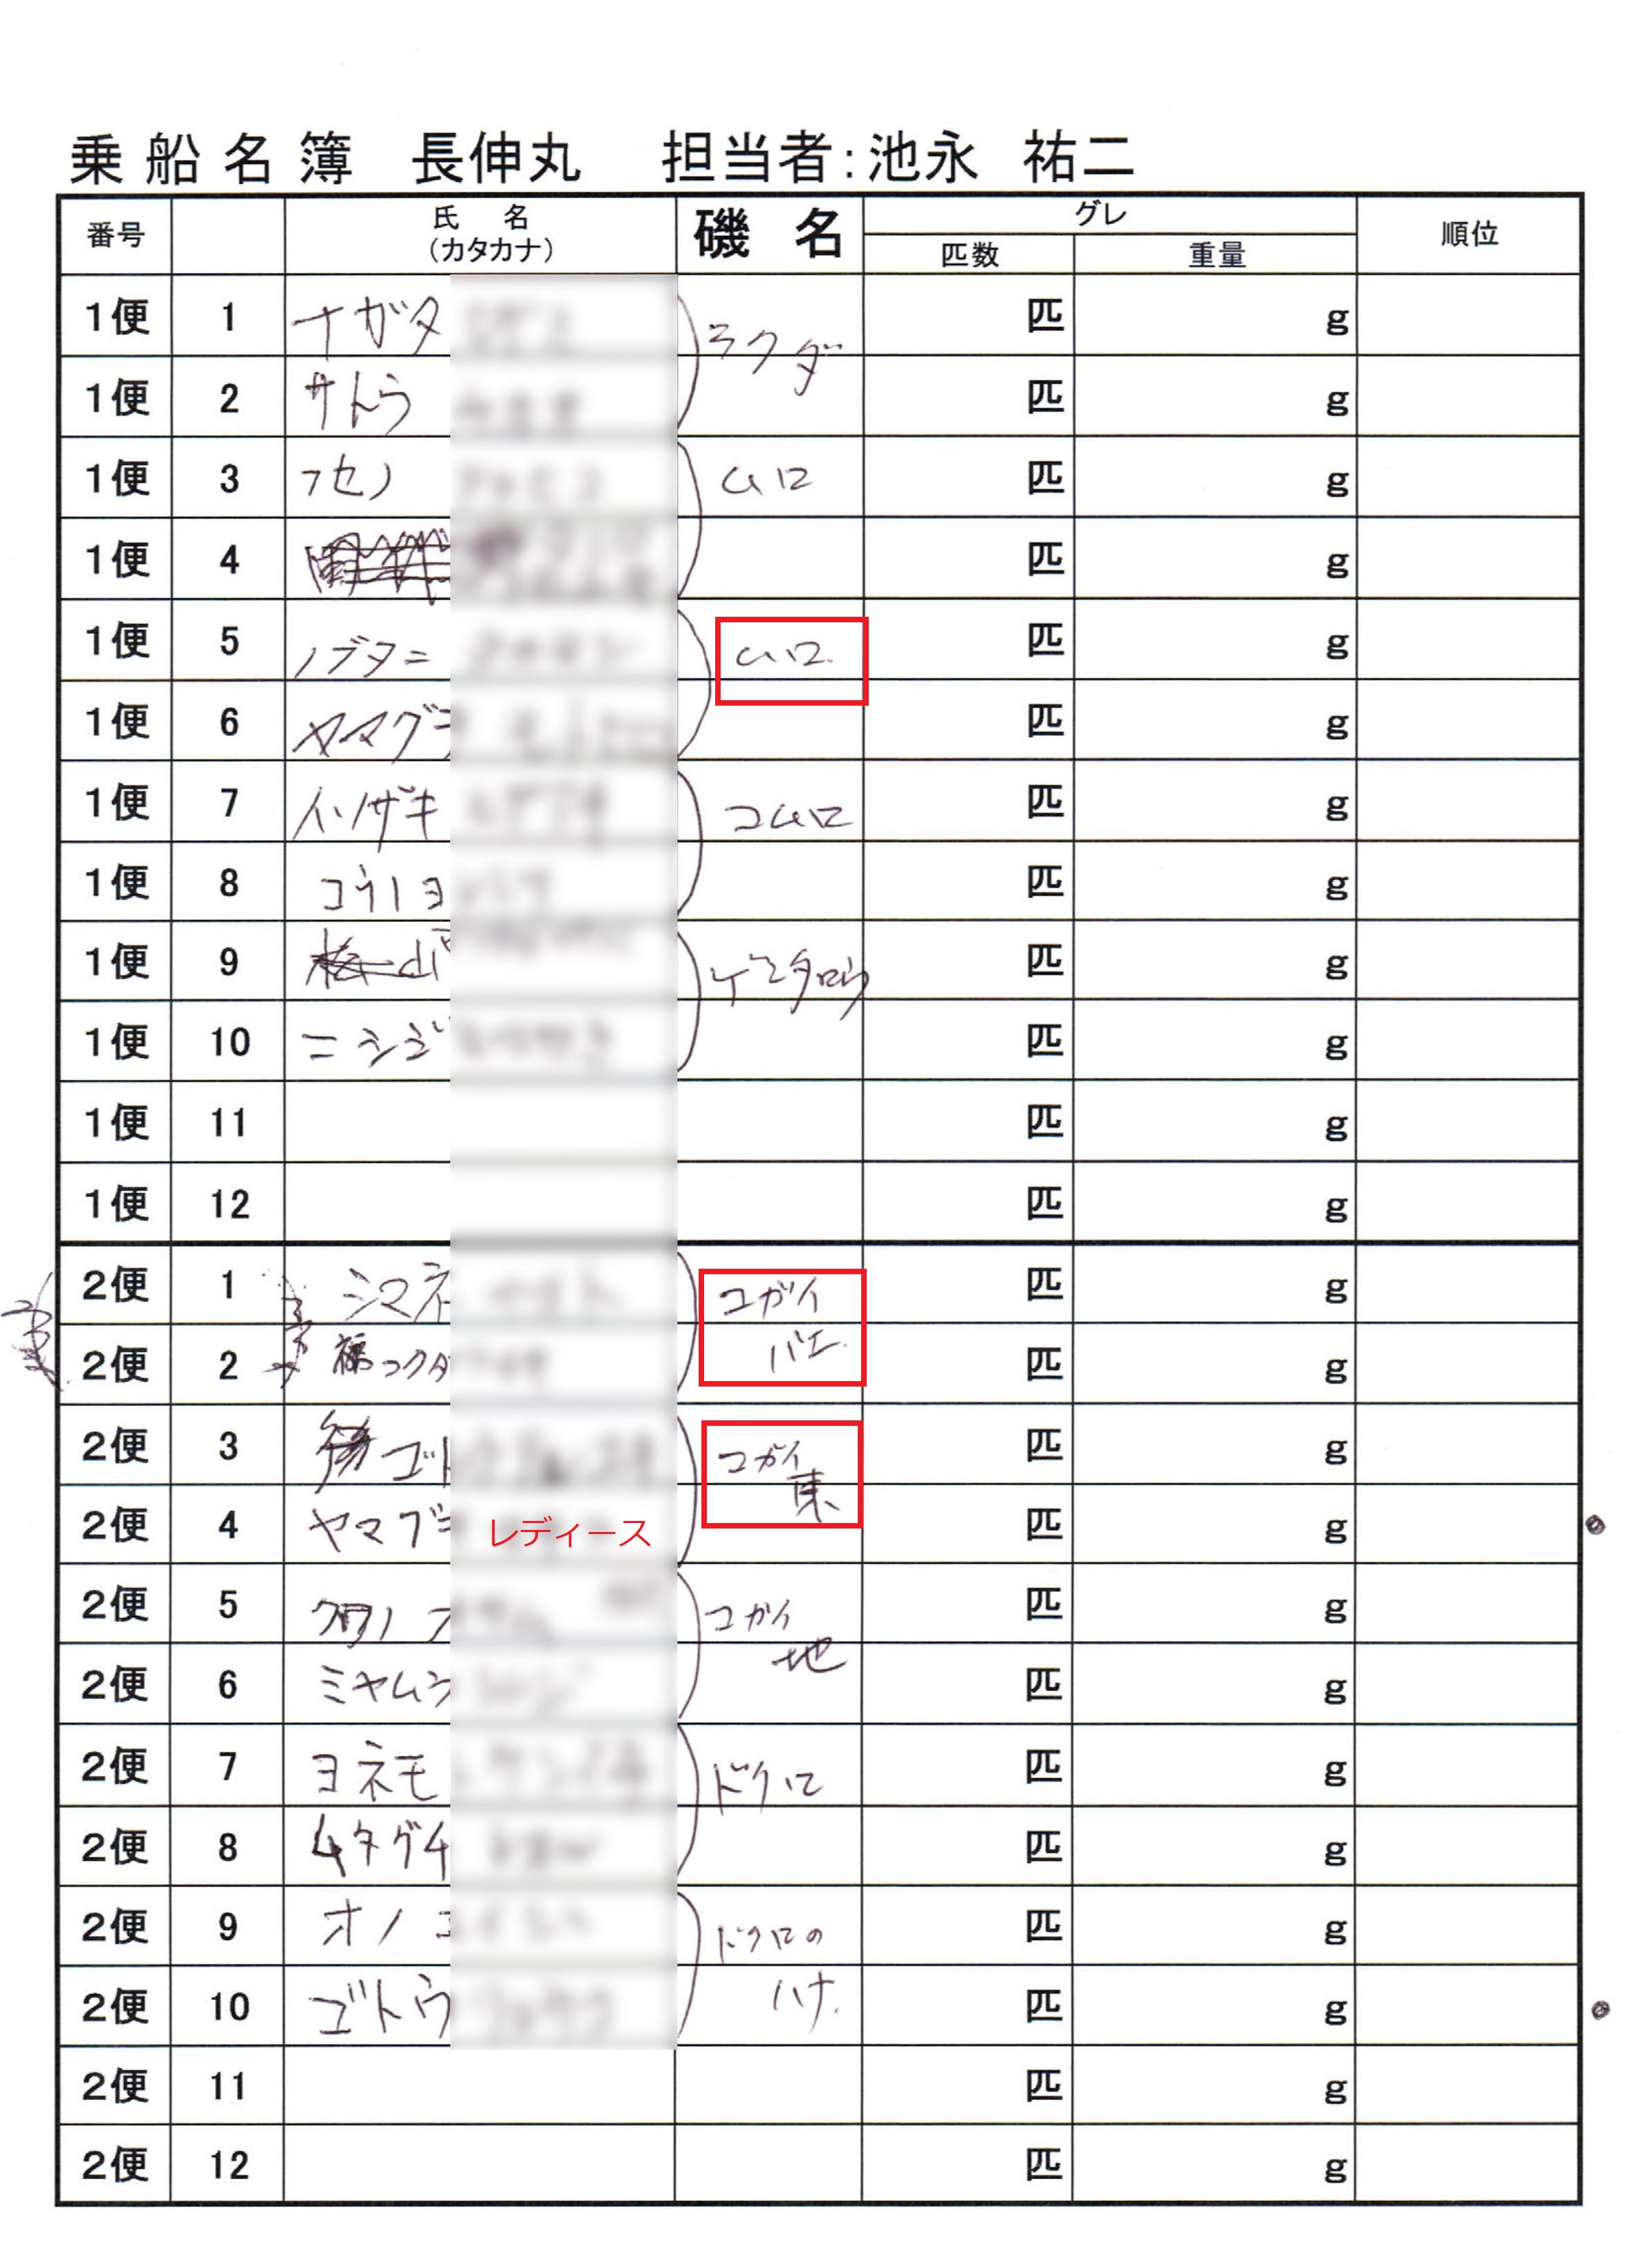 乗船名簿 長伸丸 担当者:池永 祐二
番号 氏名 (カタカナ) 磯名 グレ 匹数 重量 順位
1便 1 ナガタ ラクダ 匹 g
1便 2 サトウ 匹 g
1便 3 フセノ ムロ 匹 g
1便 4 匹 g
1便 5 ノブタニ ムロ 匹 g
1便 6 ヤマグチ 匹 g
1便 7 イソザキ コムロ 匹 g
1便 8 コウノ ヨ 匹 g
1便 9 ゲンタロウ 匹 g
1便 10 ニシジ 匹 g
1便 11 匹 g
1便 12 匹 g
2便 1 シマネ コガイ 匹 g
2便 2 フクダ バエ 匹 g
2便 3 ゴト コガイ 東 匹 g
2便 4 ヤマグチ レディース 匹 g
2便 5 コガイ 匹 g
2便 6 ミヤムラ 地 匹 g
2便 7 ヨネモ ドクロ 匹 g
2便 8 ムタグチ 匹 g
2便 9 オノ ドクロの 匹 g
2便 10 ゴトウ ハナ 匹 g
2便 11 匹 g
2便 12 匹 g